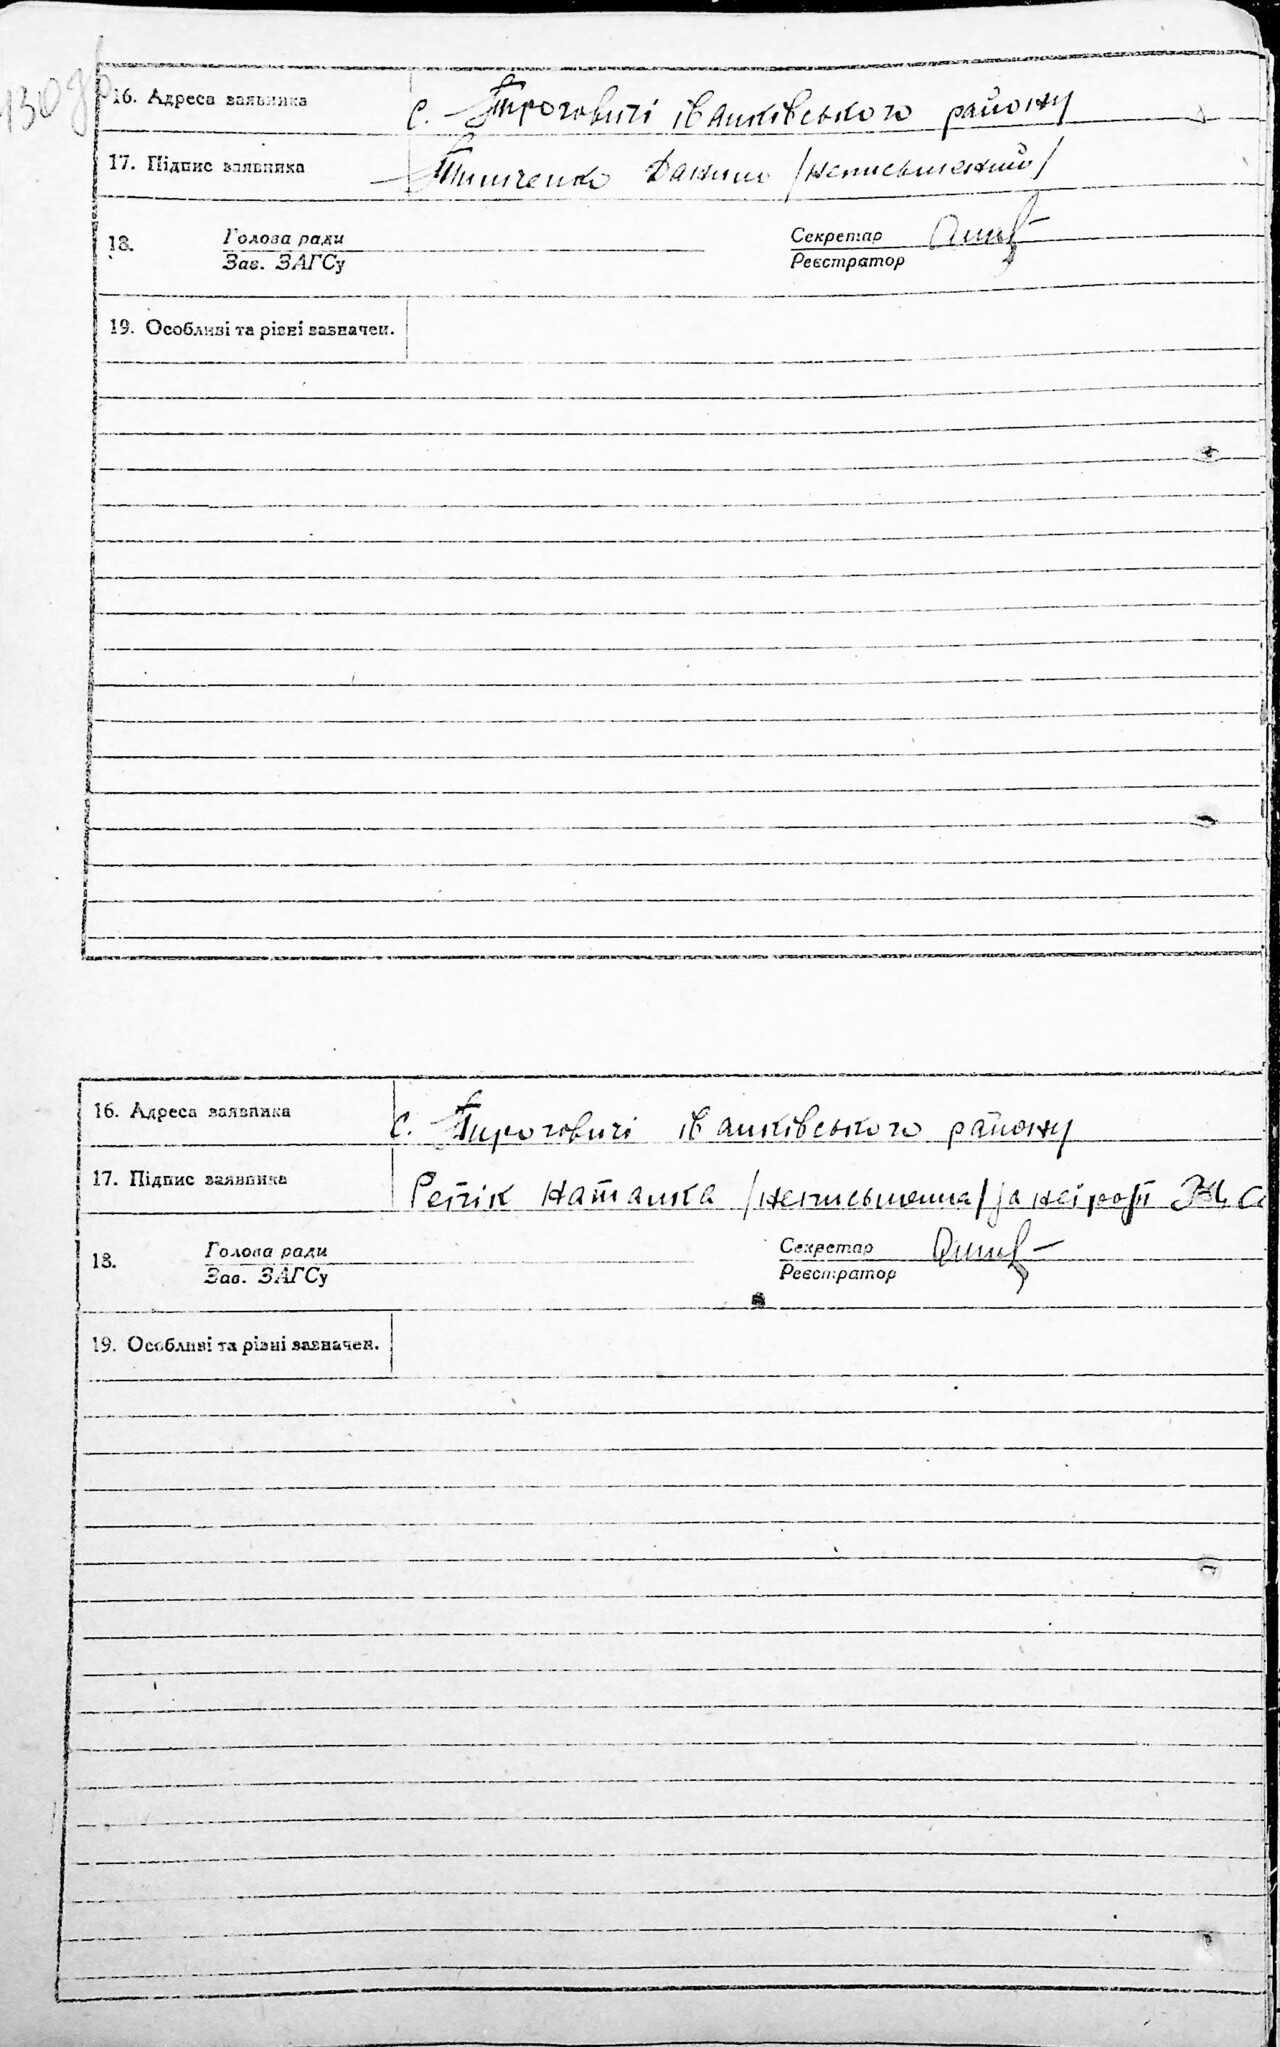 130 зв
16. Адреса заявника с. Пироговичі іванківського району
17. Підпис заявника Тимченко Данило /неписьменний/
18. Голова ради Секретар
Зав. ЗАГСу Реєстратор
19. Особливі та різні зазначен.
16. Адреса заявника с. Пироговичі іванківського району
17. Підпис заявника Репік Наталка /неписьменна/ за неї розп
18. Голова ради Секретар
Зав. ЗАГСу Реєстратор
19. Особливі та різні зазначен.